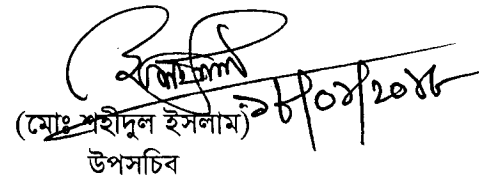 ১৮/০৪/২০১৮
(মোঃ শহীদুল ইসলাম)
উপসচিব